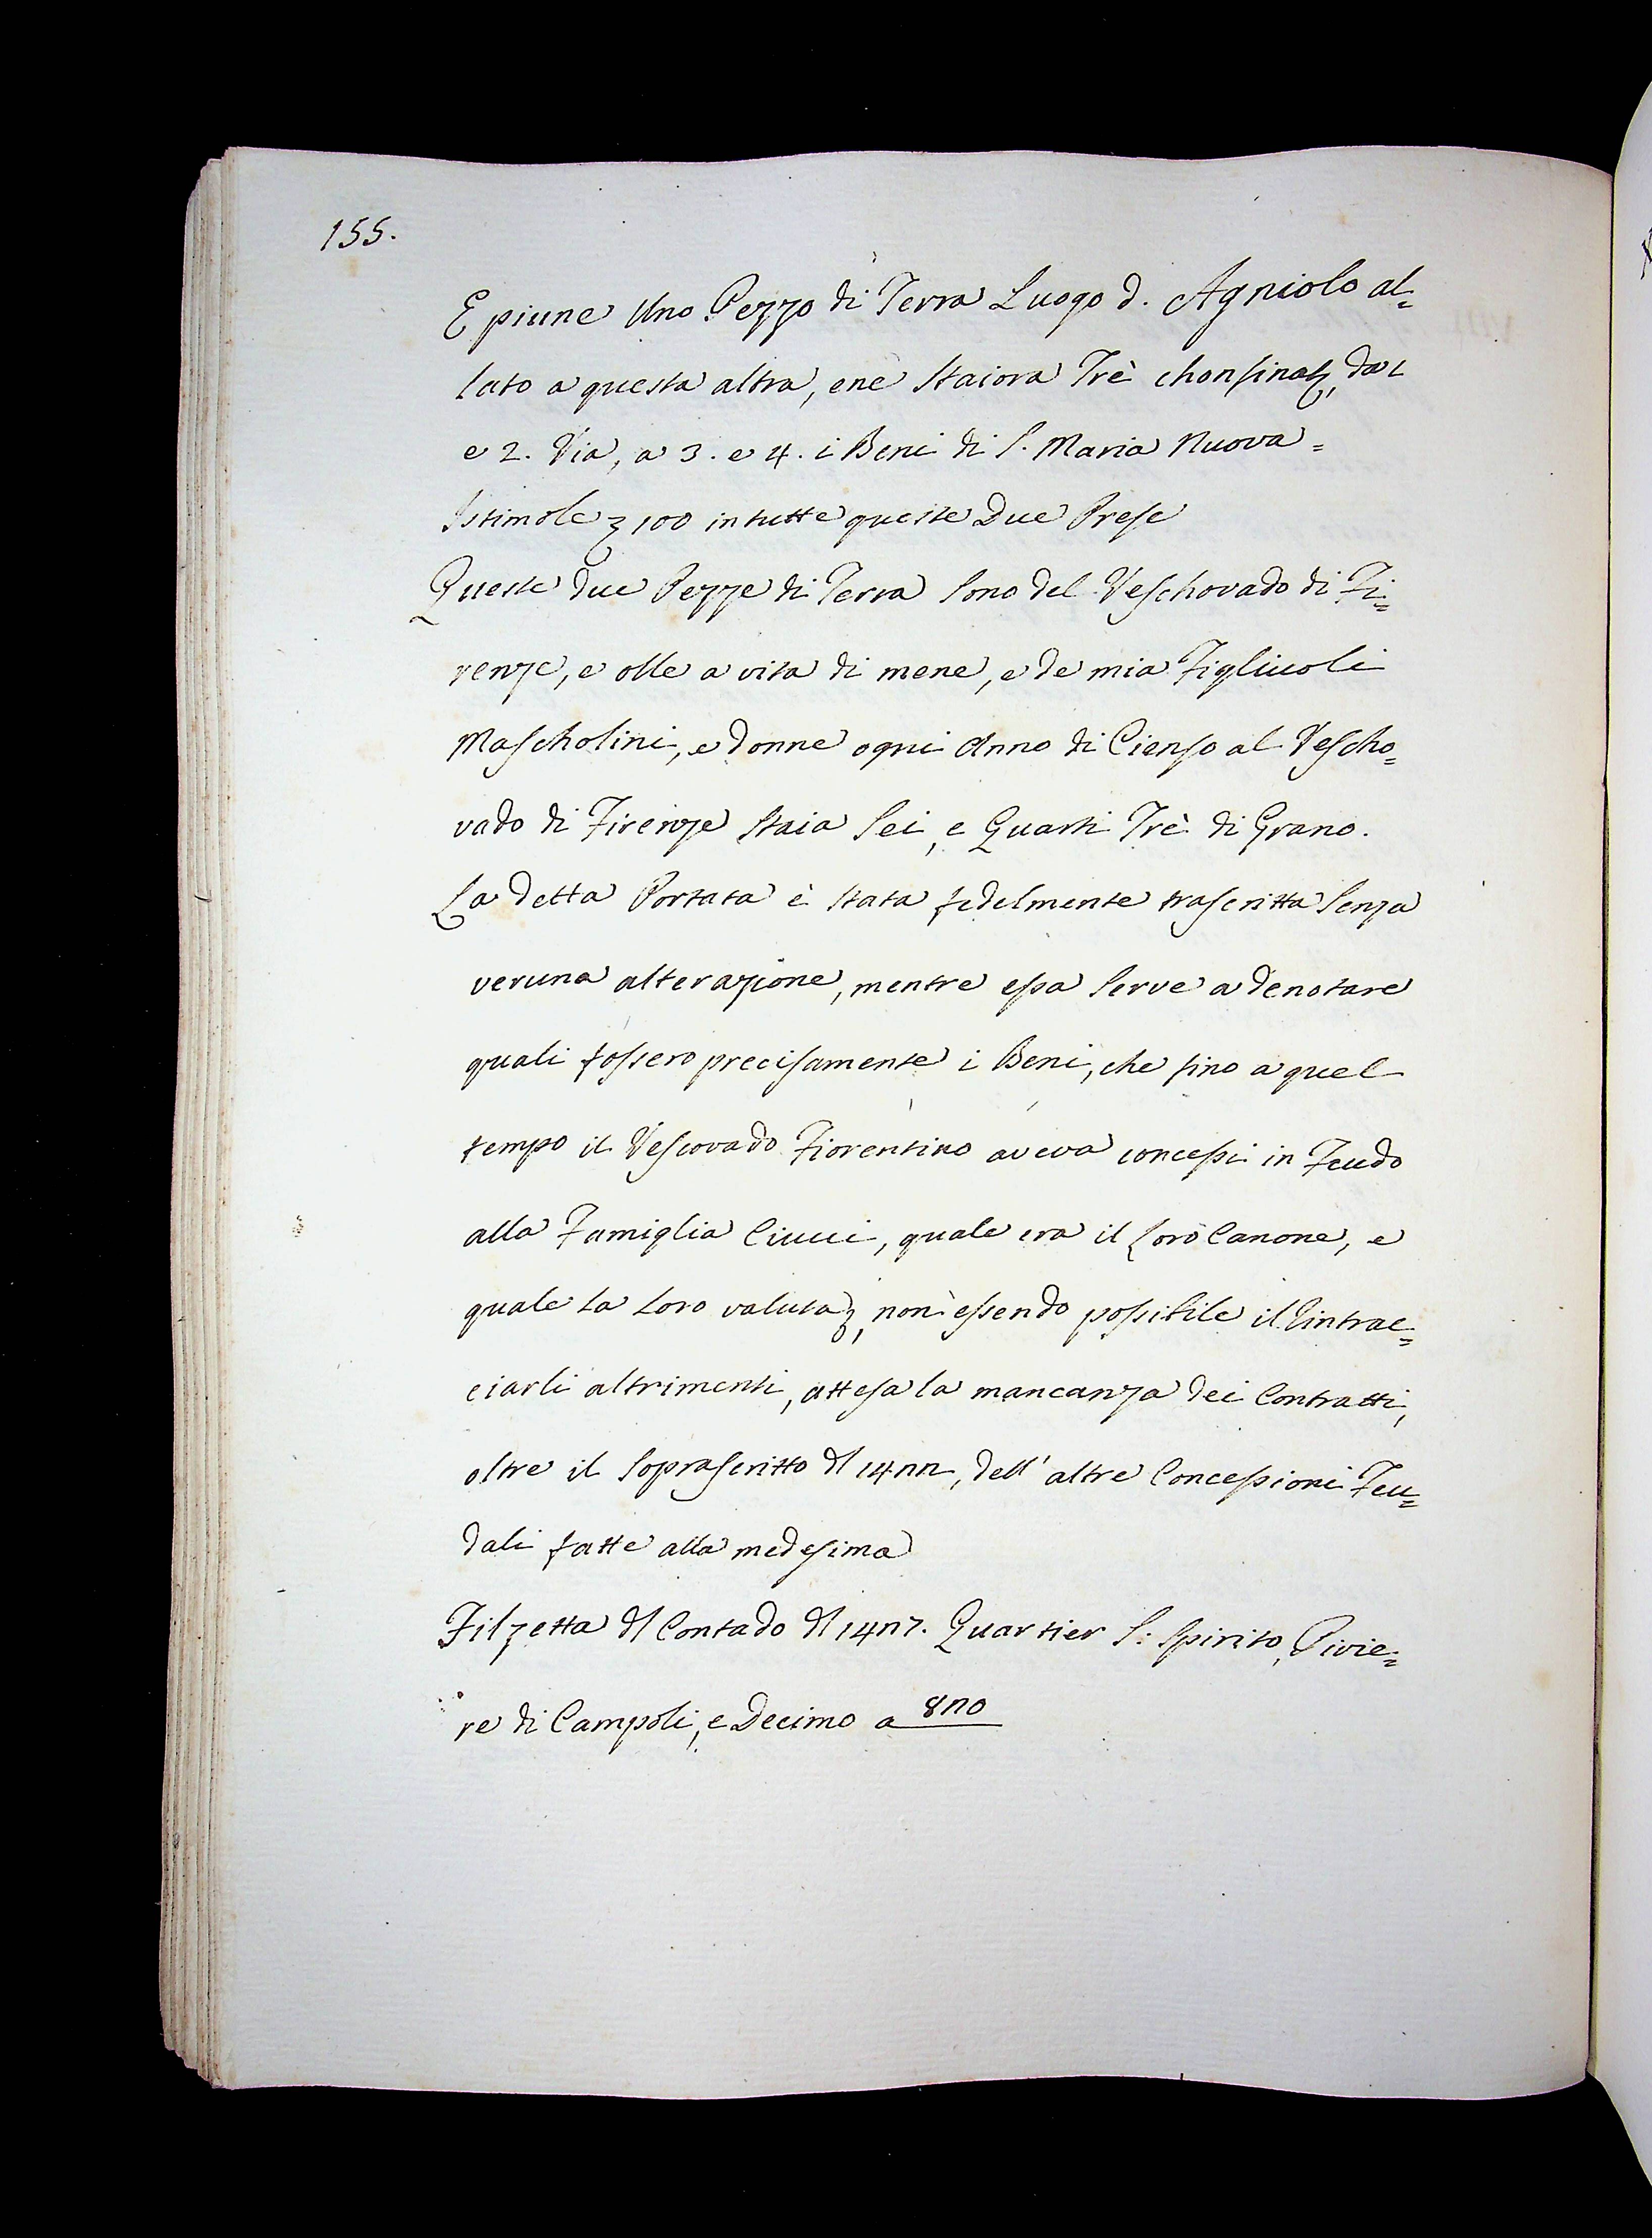 155.
E piune Uno Pezzo di Terra Luogo d. Agniolo al=
lato a questa altra, enè Staiora Trè chonfinaz, da 1
e 2. Via, a 3. e 4. i Beni di S. Maria Nuova =
Istimole 100 in tutte queste Due Prese
Queste due Pezze di Terra Sono del Veschovado di Fi=
renze, e olle a vita di mene, e de mia Figliuoli
Mascholini, e donne ogni Anno di Cienso al Vescho=
vado di Firenze Staia Sei, e Quarti Trè di Grano.
La detta Portata è stata fedelmente trascritta Senza
veruna alterazione, mentre essa Serve a denotare
quali fossero precisamente i Beni, che fino a quel
tempo il Vescovado Fiorentino aveva concessi in Feudo
alla Famiglia Ciucci, quale era il Loro Canone, e
quale la Loro valuta, non essendo possibile il Rintrac=
ciarli altrimenti, attesa la mancanza dei Contratti,
oltre il Soprascritto dl 1477, dell' altre Concessioni Feu=
dali fatte alla medesima
Filzetta dl Contado dl 1427. Quartier S: Spirito, Pivie=
re di Campoli, e Decimo a 870